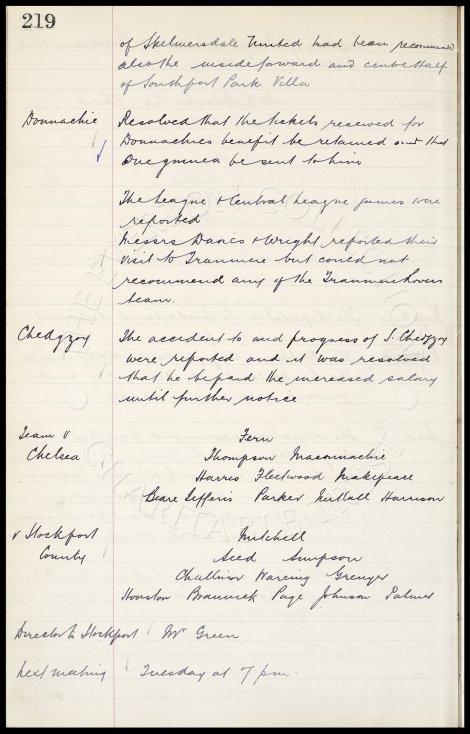 219
of Skelmersdale United had been recommend
also the inside forward and centre half
of Southport Park Villa
Donnachie Resolved that the tickets reserved for
Donnachies benefit be retained and that
One guinea be sent to him
The League & Central League games were
reported
Messrs Davies & Wright reported their
visit to Tranmere but could not
recommend any of the Tranmere Rovers
team.
Chedgzoy The accident to and progress of S. Chedgzoy
were reported and it was resolved
that he be paid the increased salary
until further notice
Team v Fern
Chelsea Thompson Maconnachie
Harris Fleetwood Makepeace
Beare Jefferis Parker Nuttall Harrison
v Stockport Mitchell
County Seed Simpson
Challinor Wareing Grenyer
Houston Brannick Page Johnson Palmer
Director to Stockport Mr Green
Next meeting Tuesday at 7 pm.